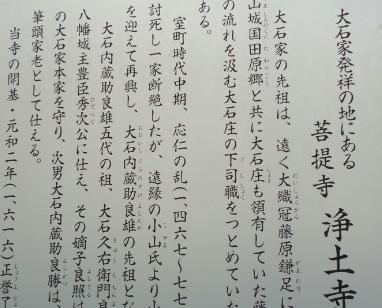 大石家発祥の地にある
菩提寺 浄土寺
大石家の先祖は、遠く大織冠藤原鎌足に
山城国田原郷と共に大石庄も領有していた藤
の流れを汲む大石庄の下司職をつとめてい
ある。
室町時代中期、応仁の乱(一、四六七〜七七
討死し一家断絶したが、遠縁の小山氏より
を迎えて再興し、大石内蔵助良雄の先祖とな
大石内蔵助良雄五代の祖、大石久右衛門良
八幡城主豊臣秀次公に仕え、その嫡子良照は
の大石家本家を守り、次男大石内蔵助良勝は、
筆頭家老として仕える。
当寺の開基・元和二年(一、六一六)正誉